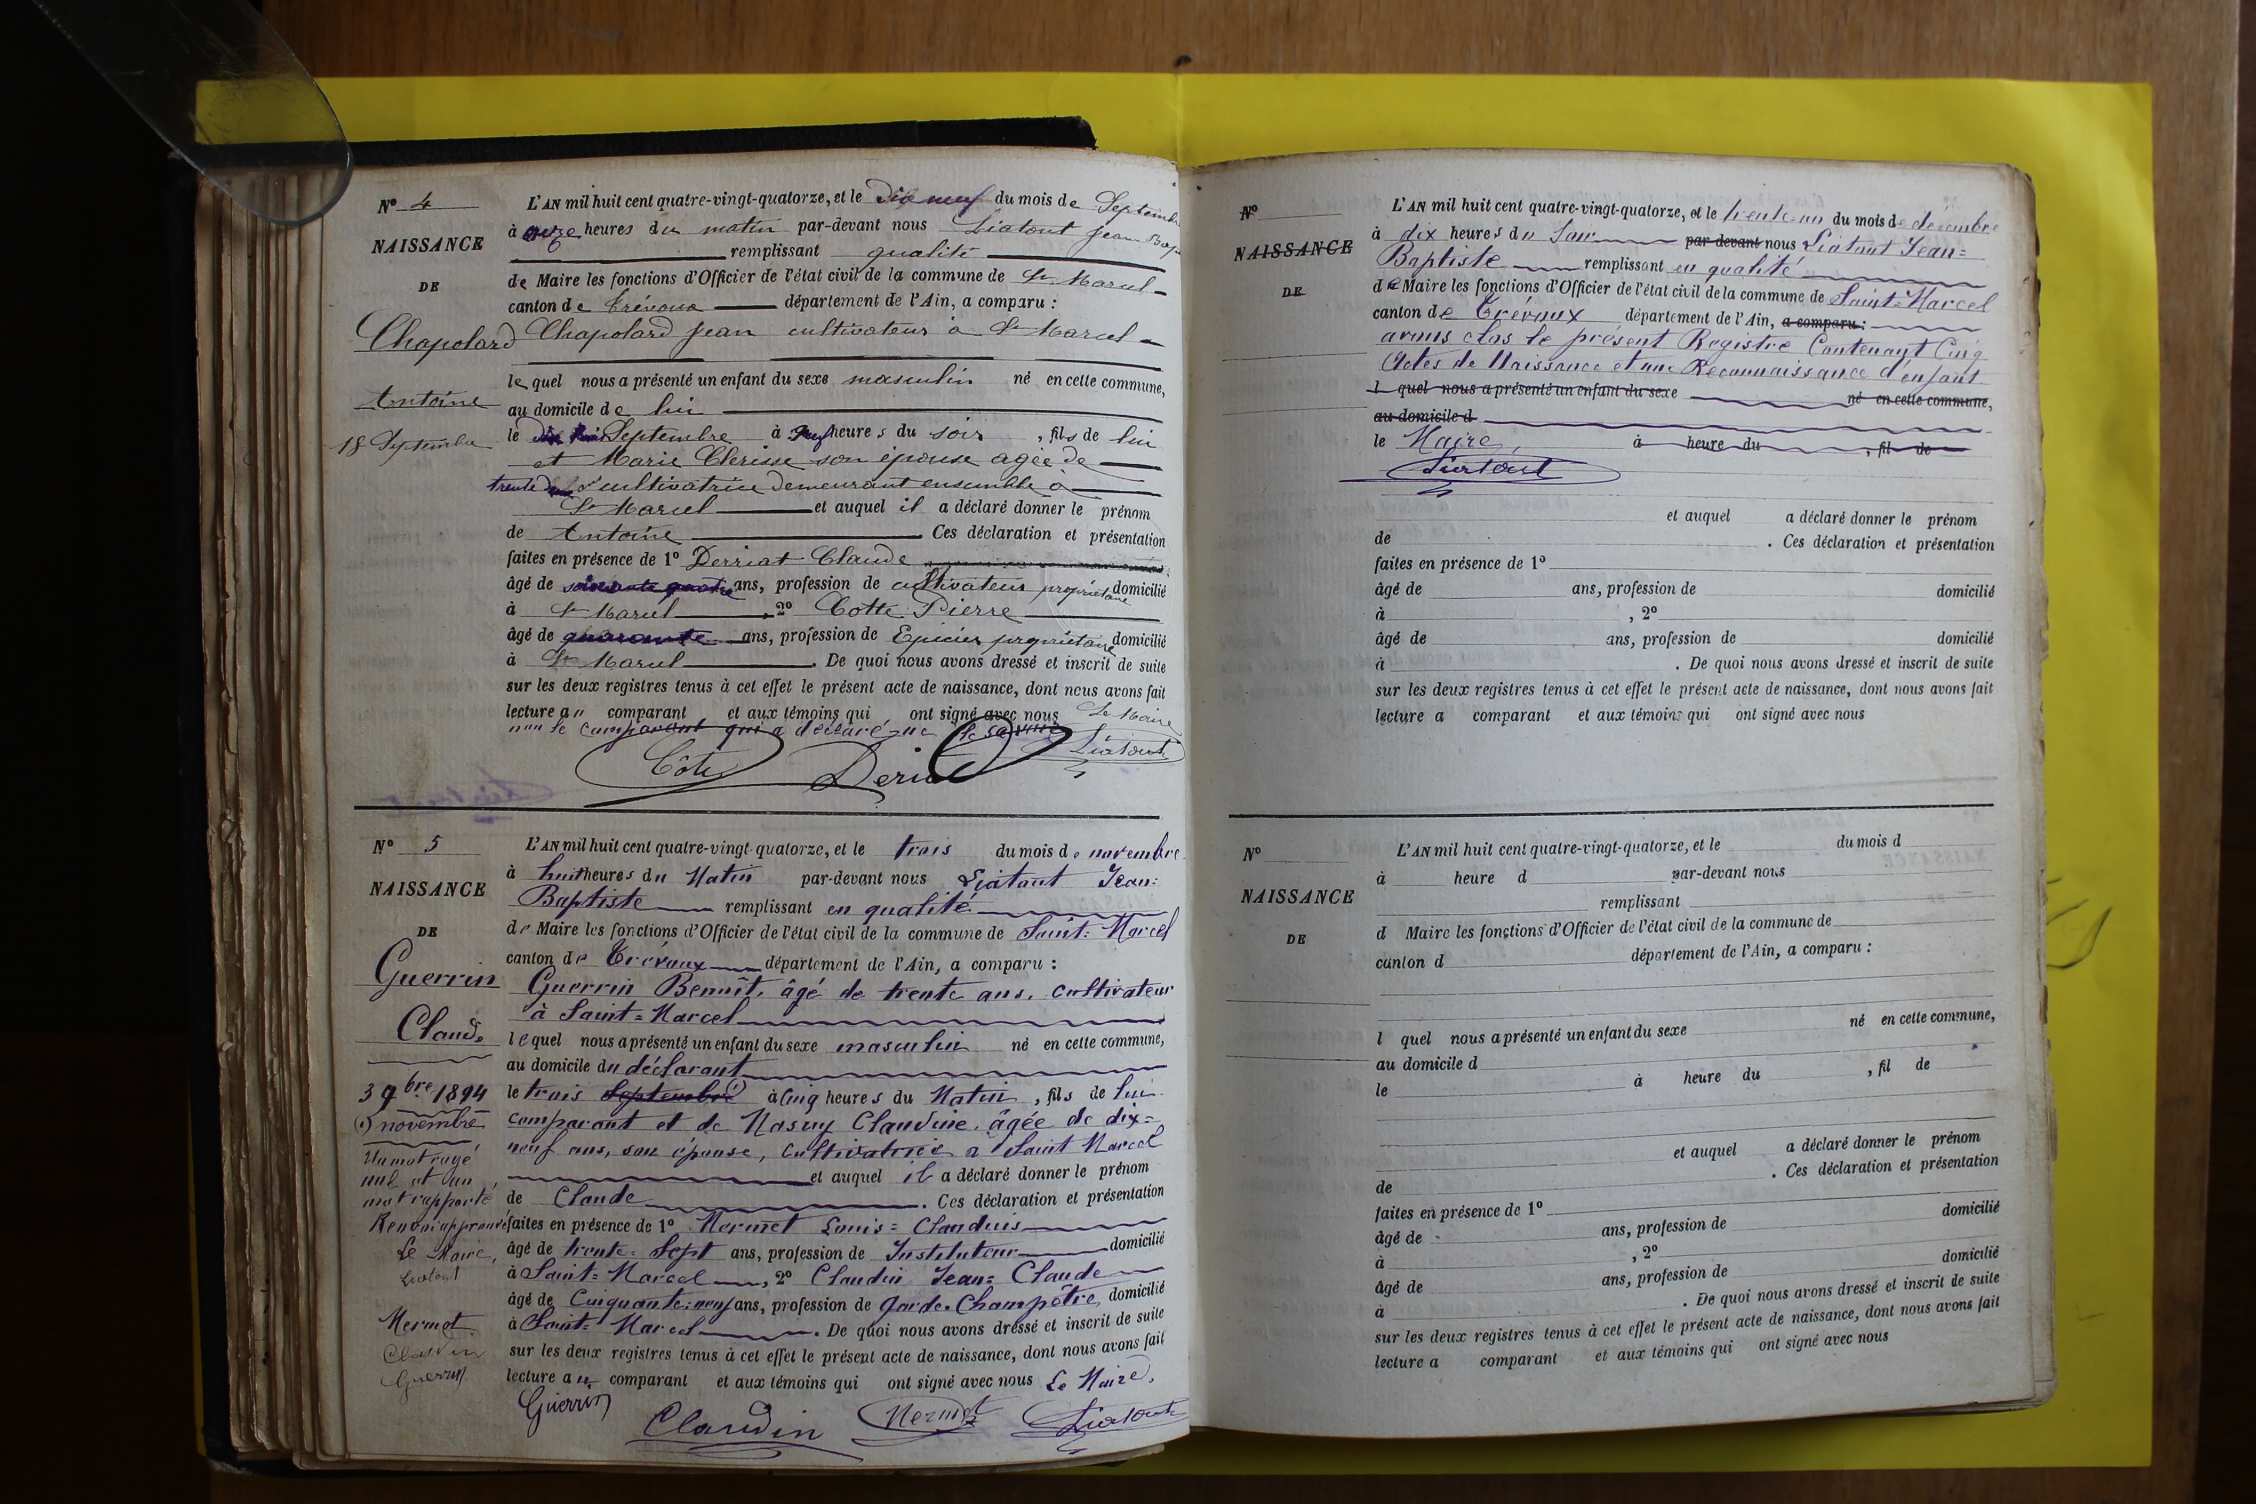 N° 4
NAISSANCE
DE
Chapolard
Antoine
18 Septembre
L'AN mil huit cent quatre-vingt-quatorze, et le dix neuf du mois de Septembre
à onze heures du matin par-devant nous Liatout Jean Bap
remplissant qualité
de Maire les fonctions d'Officier de l'état civil de la commune de St Marcel
canton de Trévoux département de l'Ain, a comparu :
Chapolard Jean cultivateur à St Marcel
lequel nous a présenté un enfant du sexe masculin né en cette commune,
au domicile de lui
le dix huit Septembre à neuf heures du soir , fils de lui
et Marie Clerisse son épouse agée de
trente cultivatrice demeurant ensemble à
St Marcel et auquel il a déclaré donner le prénom
de Antoine Ces déclaration et présentation
faites en présence de 1° Derriat Claude
âgé de soixante quatre ans, profession de cultivateur propriétaire domicilié
à St Marcel , 2° Cotte Pierre
âgé de quarante ans, profession de Epicier propriétaire domicilié
à St Marcel . De quoi nous avons dressé et inscrit de suite
sur les deux registres tenus à cet effet le présent acte de naissance, dont nous avons fait
lecture au comparant et aux témoins qui ont signé avec nous Le Maire
non le comparant qui a déclaré ne le savoir
Côte Deriat Liatout
N° 5
NAISSANCE
DE
Guerrin
Claude
3 9bre 1894
(1) novembre
Un mot rayé
nul et un
mot rapporté
Renvoi approuvé
Le Maire,
Liatout
Mermet
Claudin
Guerrin
L'AN mil huit cent quatre-vingt-quatorze, et le trois du mois de novembre
à huit heures du Matin par-devant nous Liatout Jean=
Baptiste remplissant en qualité
de Maire les fonctions d'Officier de l'état civil de la commune de Saint=Marcel
canton de Trévoux département de l'Ain, a comparu :
Guerrin Benoît, âgé de trente ans, cultivateur
à Saint=Marcel
lequel nous a présenté un enfant du sexe masculin né en cette commune,
au domicile du déclarant
le trois Septembre (1) à Cinq heures du Matin , fils de lui
comparant et de Masuy Claudine, âgée de dix=
neuf ans, son épouse, cultivatrice à Saint Marcel
et auquel il a déclaré donner le prénom
de Claude . Ces déclaration et présentation
faites en présence de 1° Mermet Louis=Claudius
âgé de trente=Sept ans, profession de Instituteur domicilié
à Saint=Marcel , 2° Claudin Jean=Claude
âgé de Cinquante=neuf ans, profession de garde=Champêtre domicilié
à Saint=Marcel . De quoi nous avons dressé et inscrit de suite
sur les deux registres tenus à cet effet le présent acte de naissance, dont nous avons fait
lecture au comparant et aux témoins qui ont signé avec nous Le Maire,
Guerrin Claudin Mermet Liatout
N°
NAISSANCE
DE
L'AN mil huit cent quatre-vingt-quatorze, et le trente-un du mois de décembre
à dix heures du Soir par-devant nous Liatout Jean=
Baptiste remplissant en qualité
de Maire les fonctions d'Officier de l'état civil de la commune de Saint=Marcel
canton de Trévoux département de l'Ain, a comparu :
avons clos le présent Registre Contenant Cinq
Actes de Naissance et une Reconnaissance d'enfant
l quel nous a présenté un enfant du sexe né en cette commune,
au domicile d
le Maire, à heure du , fil de
Liatout
et auquel a déclaré donner le prénom
de . Ces déclaration et présentation
faites en présence de 1°
âgé de ans, profession de domicilié
à , 2°
âgé de ans, profession de domicilié
à . De quoi nous avons dressé et inscrit de suite
sur les deux registres tenus à cet effet le présent acte de naissance, dont nous avons fait
lecture a comparant et aux témoins qui ont signé avec nous
N°
NAISSANCE
DE
L'AN mil huit cent quatre-vingt-quatorze, et le du mois d
à heure d par-devant nous
remplissant
d Maire les fonctions d'Officier de l'état civil de la commune de
canton d département de l'Ain, a comparu :
l quel nous a présenté un enfant du sexe né en cette commune,
au domicile d
le à heure du , fil de
et auquel a déclaré donner le prénom
de . Ces déclaration et présentation
faites en présence de 1°
âgé de ans, profession de domicilié
à , 2°
âgé de ans, profession de domicilié
à . De quoi nous avons dressé et inscrit de suite
sur les deux registres tenus à cet effet le présent acte de naissance, dont nous avons fait
lecture a comparant et aux témoins qui ont signé avec nous